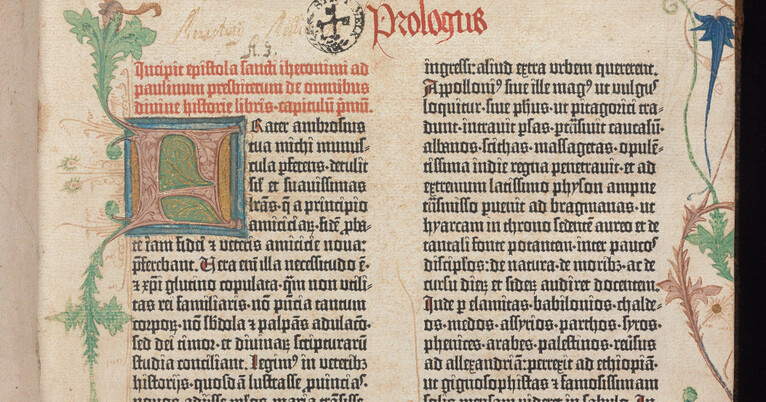 Prologus
Incipit epistola sancti iheronimi ad
paulinum presbiterum de omnibus
divine historie libris· capitulū p̄mū·
FRater ambrosius
tua michi munus-
cula p̄ferens· detulit
sił et suavissimas
lrās· q̄ a principio
amiciciaꝝ· fidē ꝓba-
te iam fidei ⁊ veteris amicicie nova·
p̄ferebant. Vera eni illa necessitudo ē·
⁊ xp̄i glutino copulata· q̄m non utili-
tas rei familiaris· nō p̄ncia tantum
corpoꝝ· nō sb̄dola ⁊ palpās adulacō·
sed dei timor· et divinaꝝ scripturarū
studia conciliant. Legimꝰ in veteribꝫ
historijs· quosdā lustrasse ꝓuincias·
novos adijsse plos· maria trāsisse·
ingressi: aliud extra urbem quererent.
Appolloniꝰ sive ille magꝰ ut vulgus
loquitur· sive ph̄us· ut pitagorici tra-
dunt· intravit p̄sas· ꝑtrāsivit caucasū·
albanos· scithas· massagetas· opulē-
tissima indie regna penetravit· et ad
extremum latissimo physon ampne
trāsmisso ꝑvenit ad bragmanas· ut
hyarcam in throno sedentē aureo et de
tantali fonte potantem· inter paucos
discip̄los· de natura· de moribꝫ ac de
cursu dieꝝ et sideꝝ audiret docentem.
Inde ꝑ elamitas· babilonios· chalde-
os· medos· assyrios· parthos· syros·
phenices· arabes· palestinos· reversus
ad allexandriā: perrexit ad ethiopiā·
ut gignosophistas ⁊ famosissimam
solis mensam videret in sabulo. In-